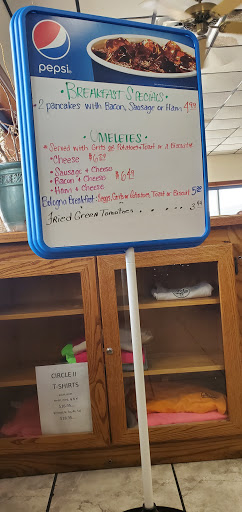 pepsi
• BREAKFAST SPECIALS •
2 pancakes with Bacon, Sausage or Ham 4.99
• OMELETES •
• Served with Grits or Potatoes, Toast or a Biscuit
• Cheese $6.29
• Sausage & Cheese
• Bacon & Cheese $6.49
• Ham & Cheese
Bologna Breakfast: Eggs, Grits or Potatoes, Toast or Biscuit 5.25
Fried Green Tomatoes . . . . . . . 3.99
CIRCLE II
T-SHIRTS